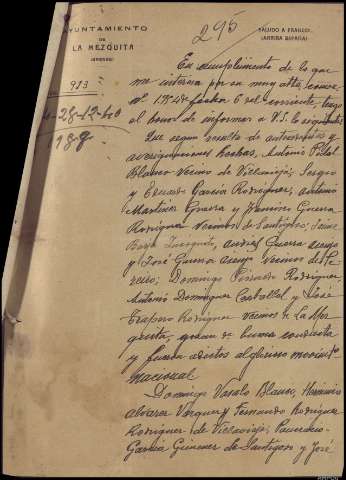 AYUNTAMIENTO
DE
LA MEZQUITA
(ORENSE)
295
SALUDO A FRANCO:
¡ARRIBA ESPAÑA!
983
28-12-40
198
En cumplimiento de lo que
me interesa por su muy atta, comuc.
nº fecha 6 del corriente, tengo
el honor de informar a V.S. lo siguiente:
Que segun resulta de
averiguaciones hechas, Antonio
Blanco Vecino de Villavieja; Sergio
y Eduardo Garcia Rodriguez, Antonio
Martinez Guerra y Guerra
Rodriguez Vecinos de Santigoso; Jaime
Incognito, Andres Guerra
y José Guerra Vecinos de Pe-
reiro; Domingo Rodriguez
Antonio Dominguez Carballal y José
Trapero Rodriguez Vecinos de La Mez-
quita, gozan de buena conducta
y fueron adictos al glorioso movimto
nacional.
Domingo Varalo Blanco, Herminio
Alvarez Vazquez y Fernando Rodriguez
Rodriguez de Villavieja;
Garcia Gimenez de Santigoso y José